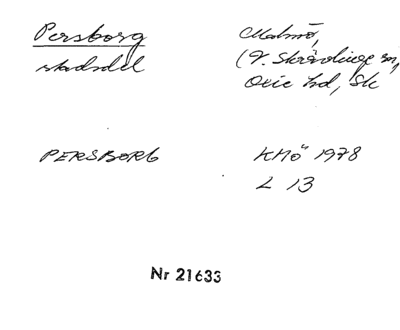 Persborg
stadsdel
Malmö,
(V. Skrävlinge sn,
Oxie hd, Sk
PERSBORG
KMö 1978
L 13
Nr 21633